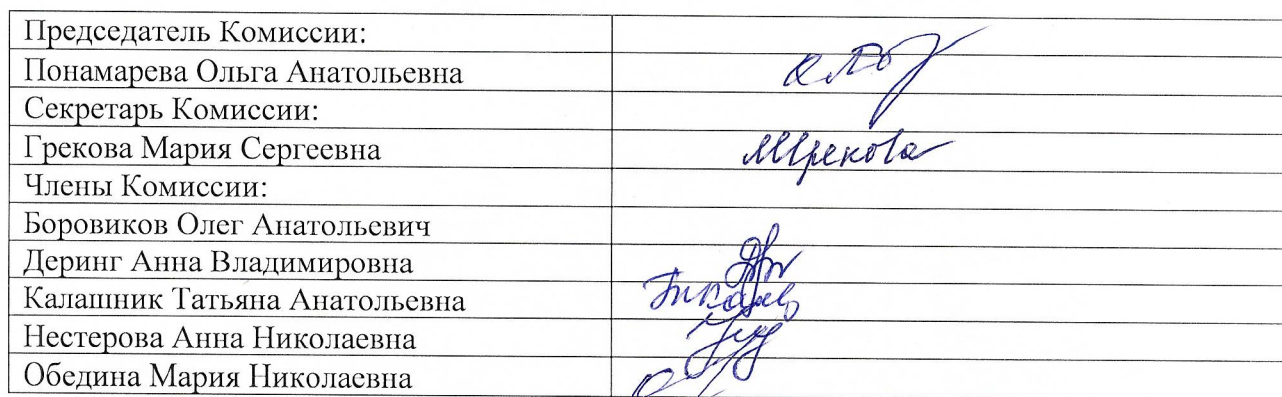 Председатель Комиссии:
Понамарева Ольга Анатольевна
Секретарь Комиссии:
Грекова Мария Сергеевна МГрекова
Члены Комиссии:
Боровиков Олег Анатольевич
Деринг Анна Владимировна
Калашник Татьяна Анатольевна
Нестерова Анна Николаевна
Обедина Мария Николаевна